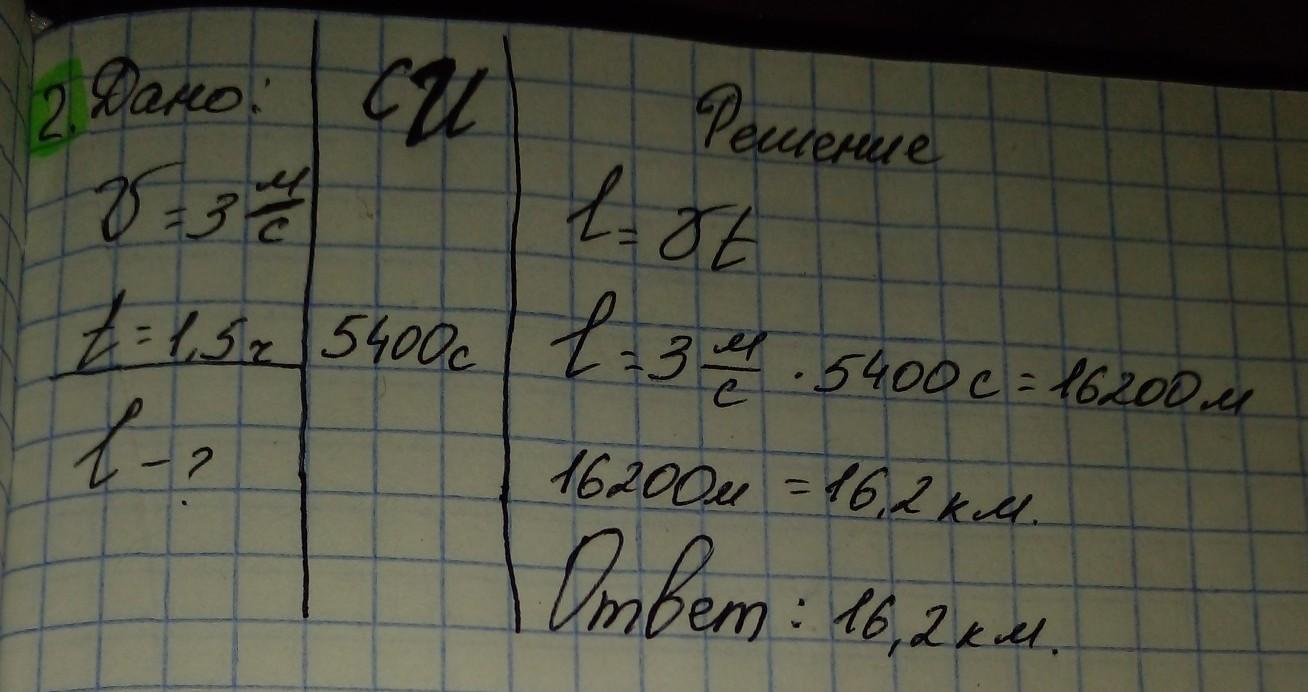 2. Дано:
υ = 3 м/с
t = 1,5 ч
l - ?
СИ
5400с
Решение
l = υt
l = 3 м/с · 5400 с = 16200 м
16200м = 16,2 км.
Ответ: 16,2 км.